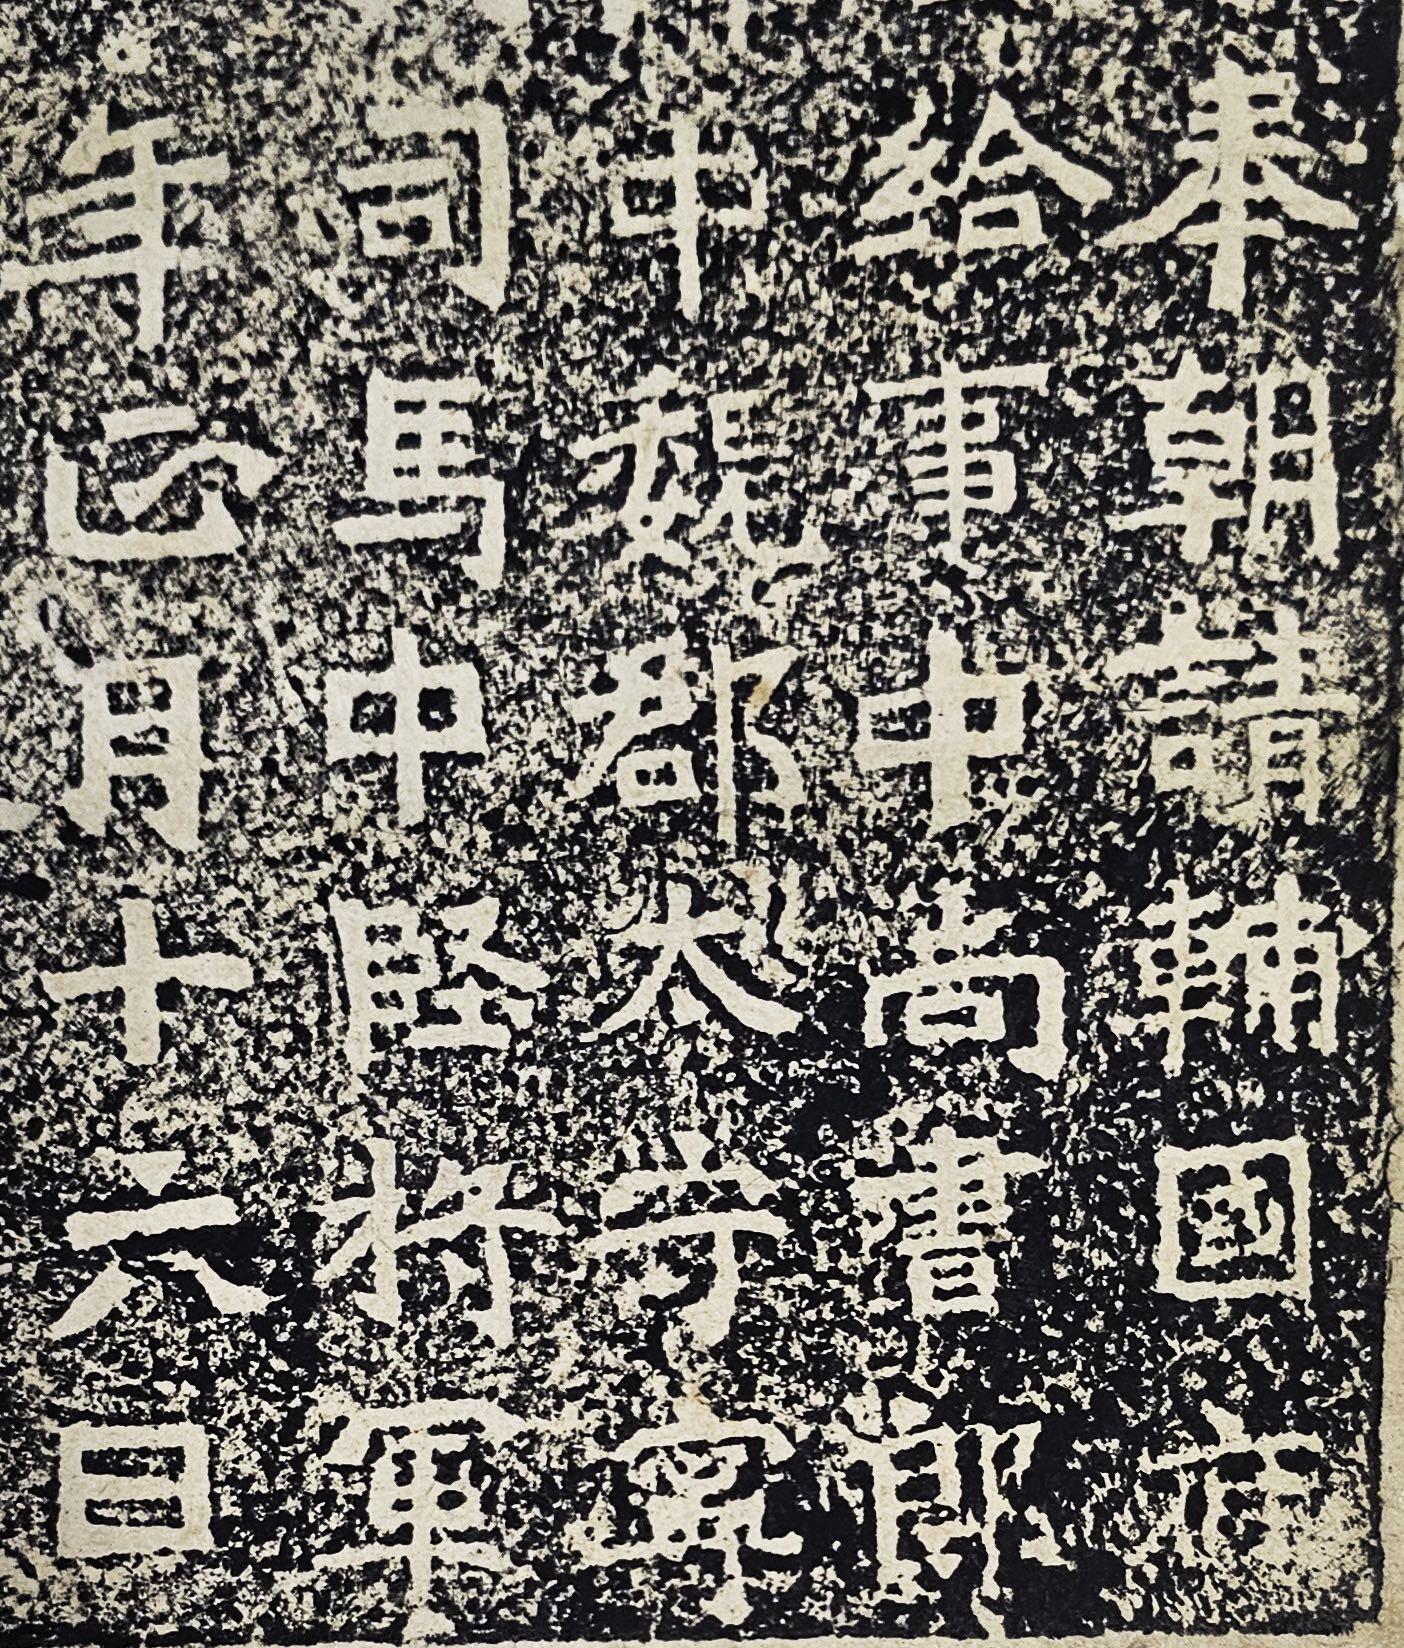 奉朝請輔國
給事中尚書郎
中魏郡太守寧
司馬中堅將軍
年正月十六日